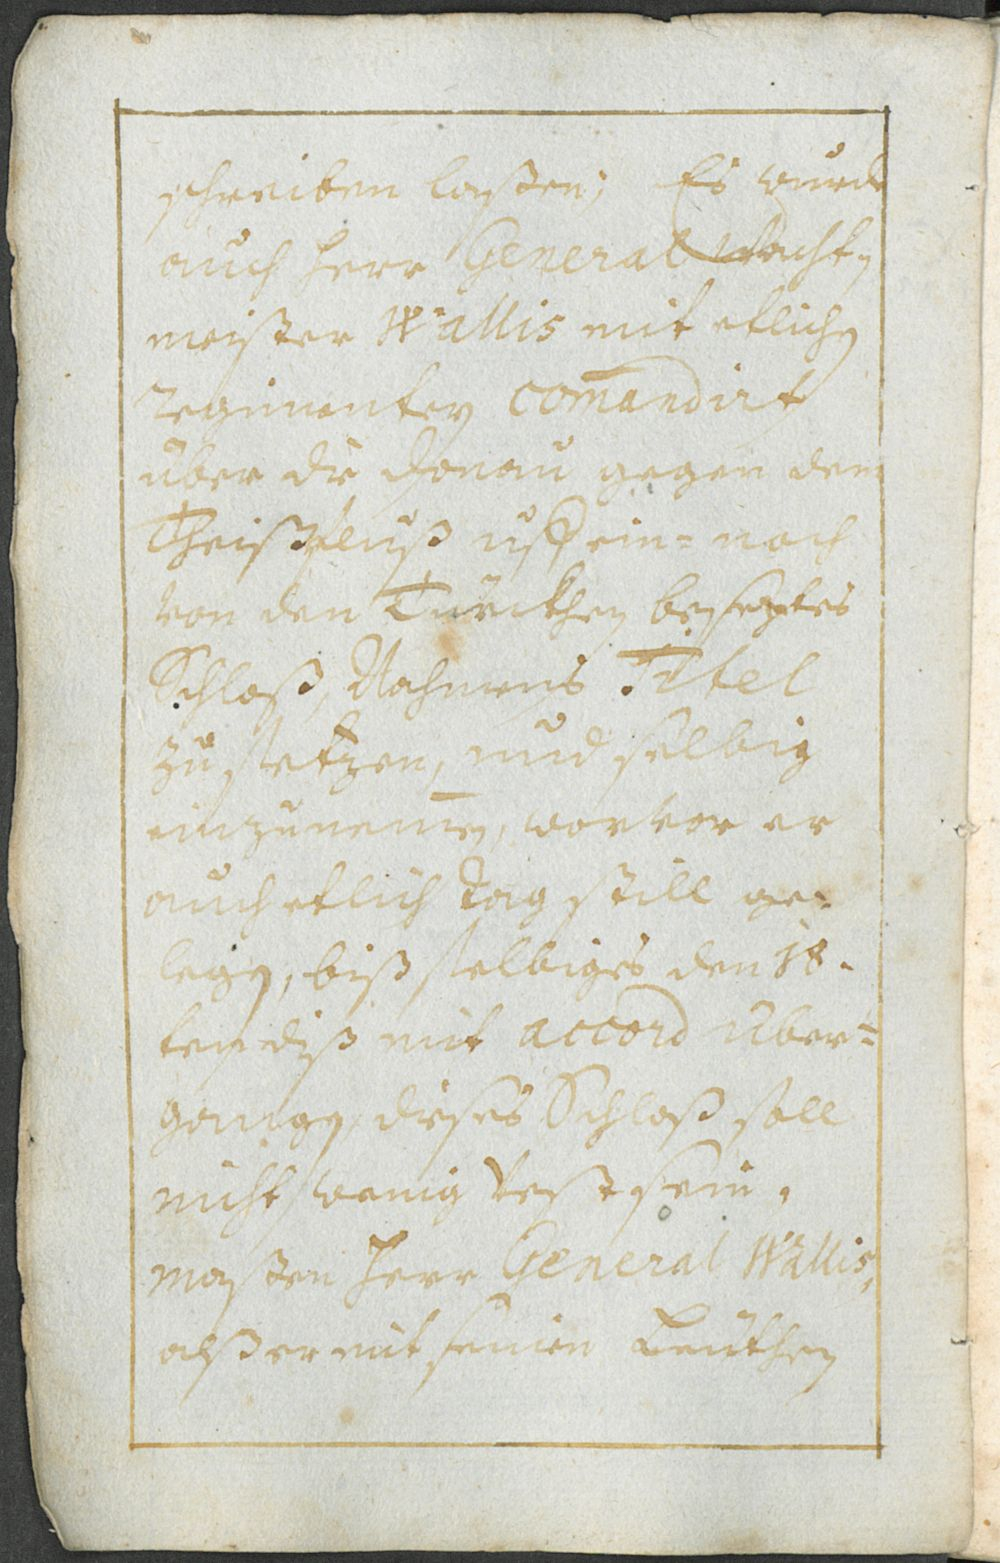 schreiben laßen; Es wurde
auch Herr General Wacht-
meister Wallis mit etlichen
Regimentern comandirt
über die Donau gegen dem
Theißfluß uff ein- noch
von den Türckhen besetztes
Schloß, Nahmens Titel
zu setzen, und selbig
einzunemen, worvor er
auch etlich Tag still ge-
legen, biß selbiges den 18.
ten diß mit accord über-
gangen, dieses Schloß soll
nicht wenig vest sein,
maßen Herr General Wallis,
alß er mit seinen Leuthen